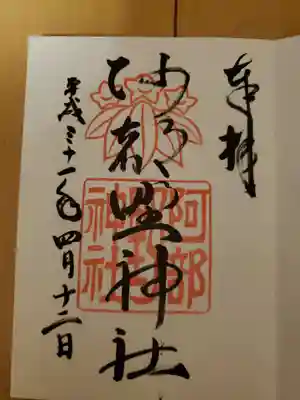 奉拝
阿部野神社
阿部野神社
平成三十一年四月十二日